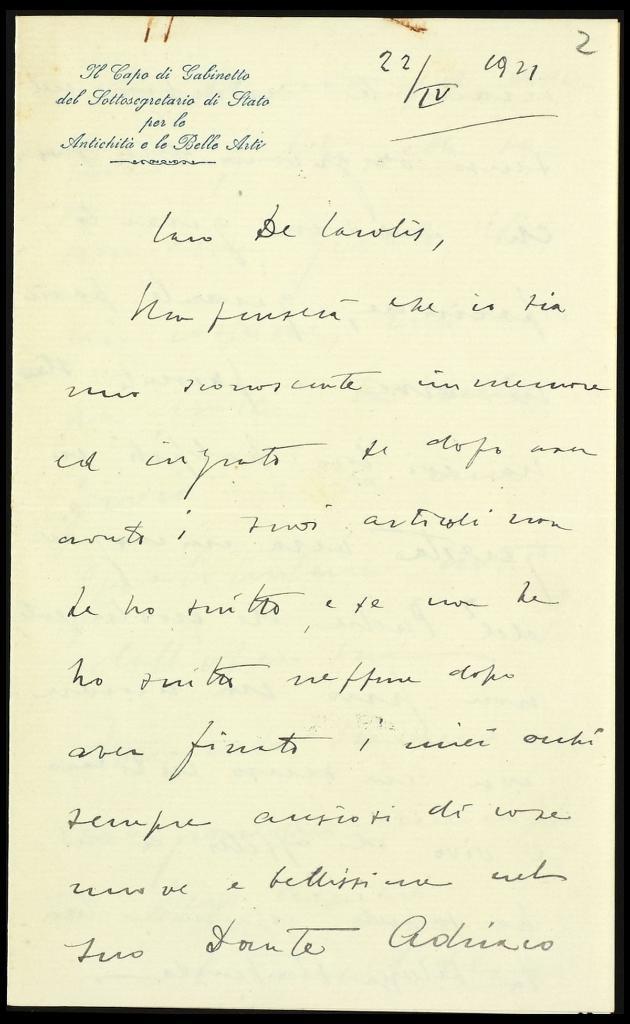 Il Capo di Gabinetto
del Sottosegretario di Stato
per le
Antichità e le Belle Arti
22/IV 1921
2
Caro De Carolis,
Non penserà che io sia
uno sconoscente immemore
ed ingrato se dopo aver
avuto i suoi articoli non
Le ho scritto, e se non Le
ho scritto neppure dopo
aver fissato i miei occhi
sempre ansiosi di cose
nuove e bellissime nel
suo Dante Adriaco